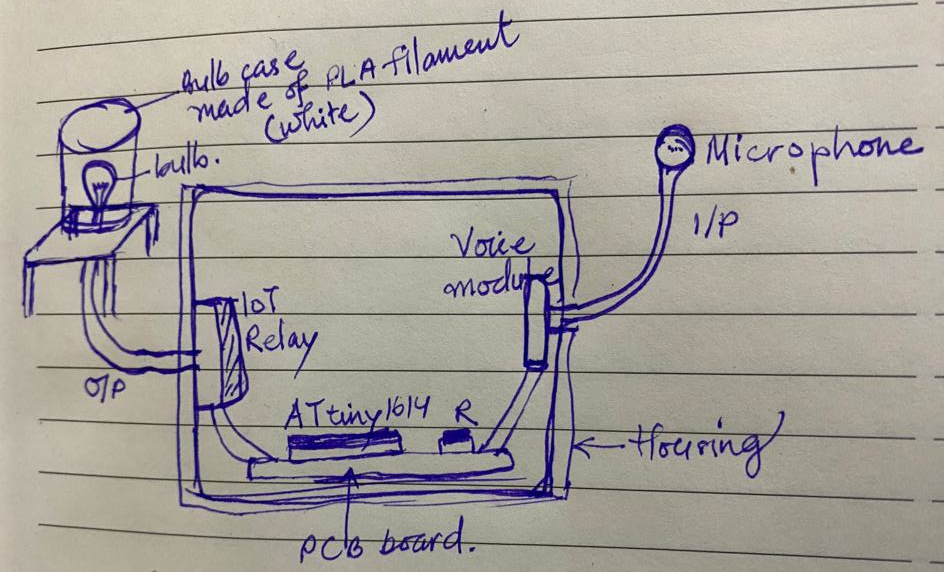 Bulb case
made of PLA filament
(white)
bulb.
Microphone
I/P
Voice
module
IoT
Relay
O/P
ATtiny1614
R
Housing
PCB board.